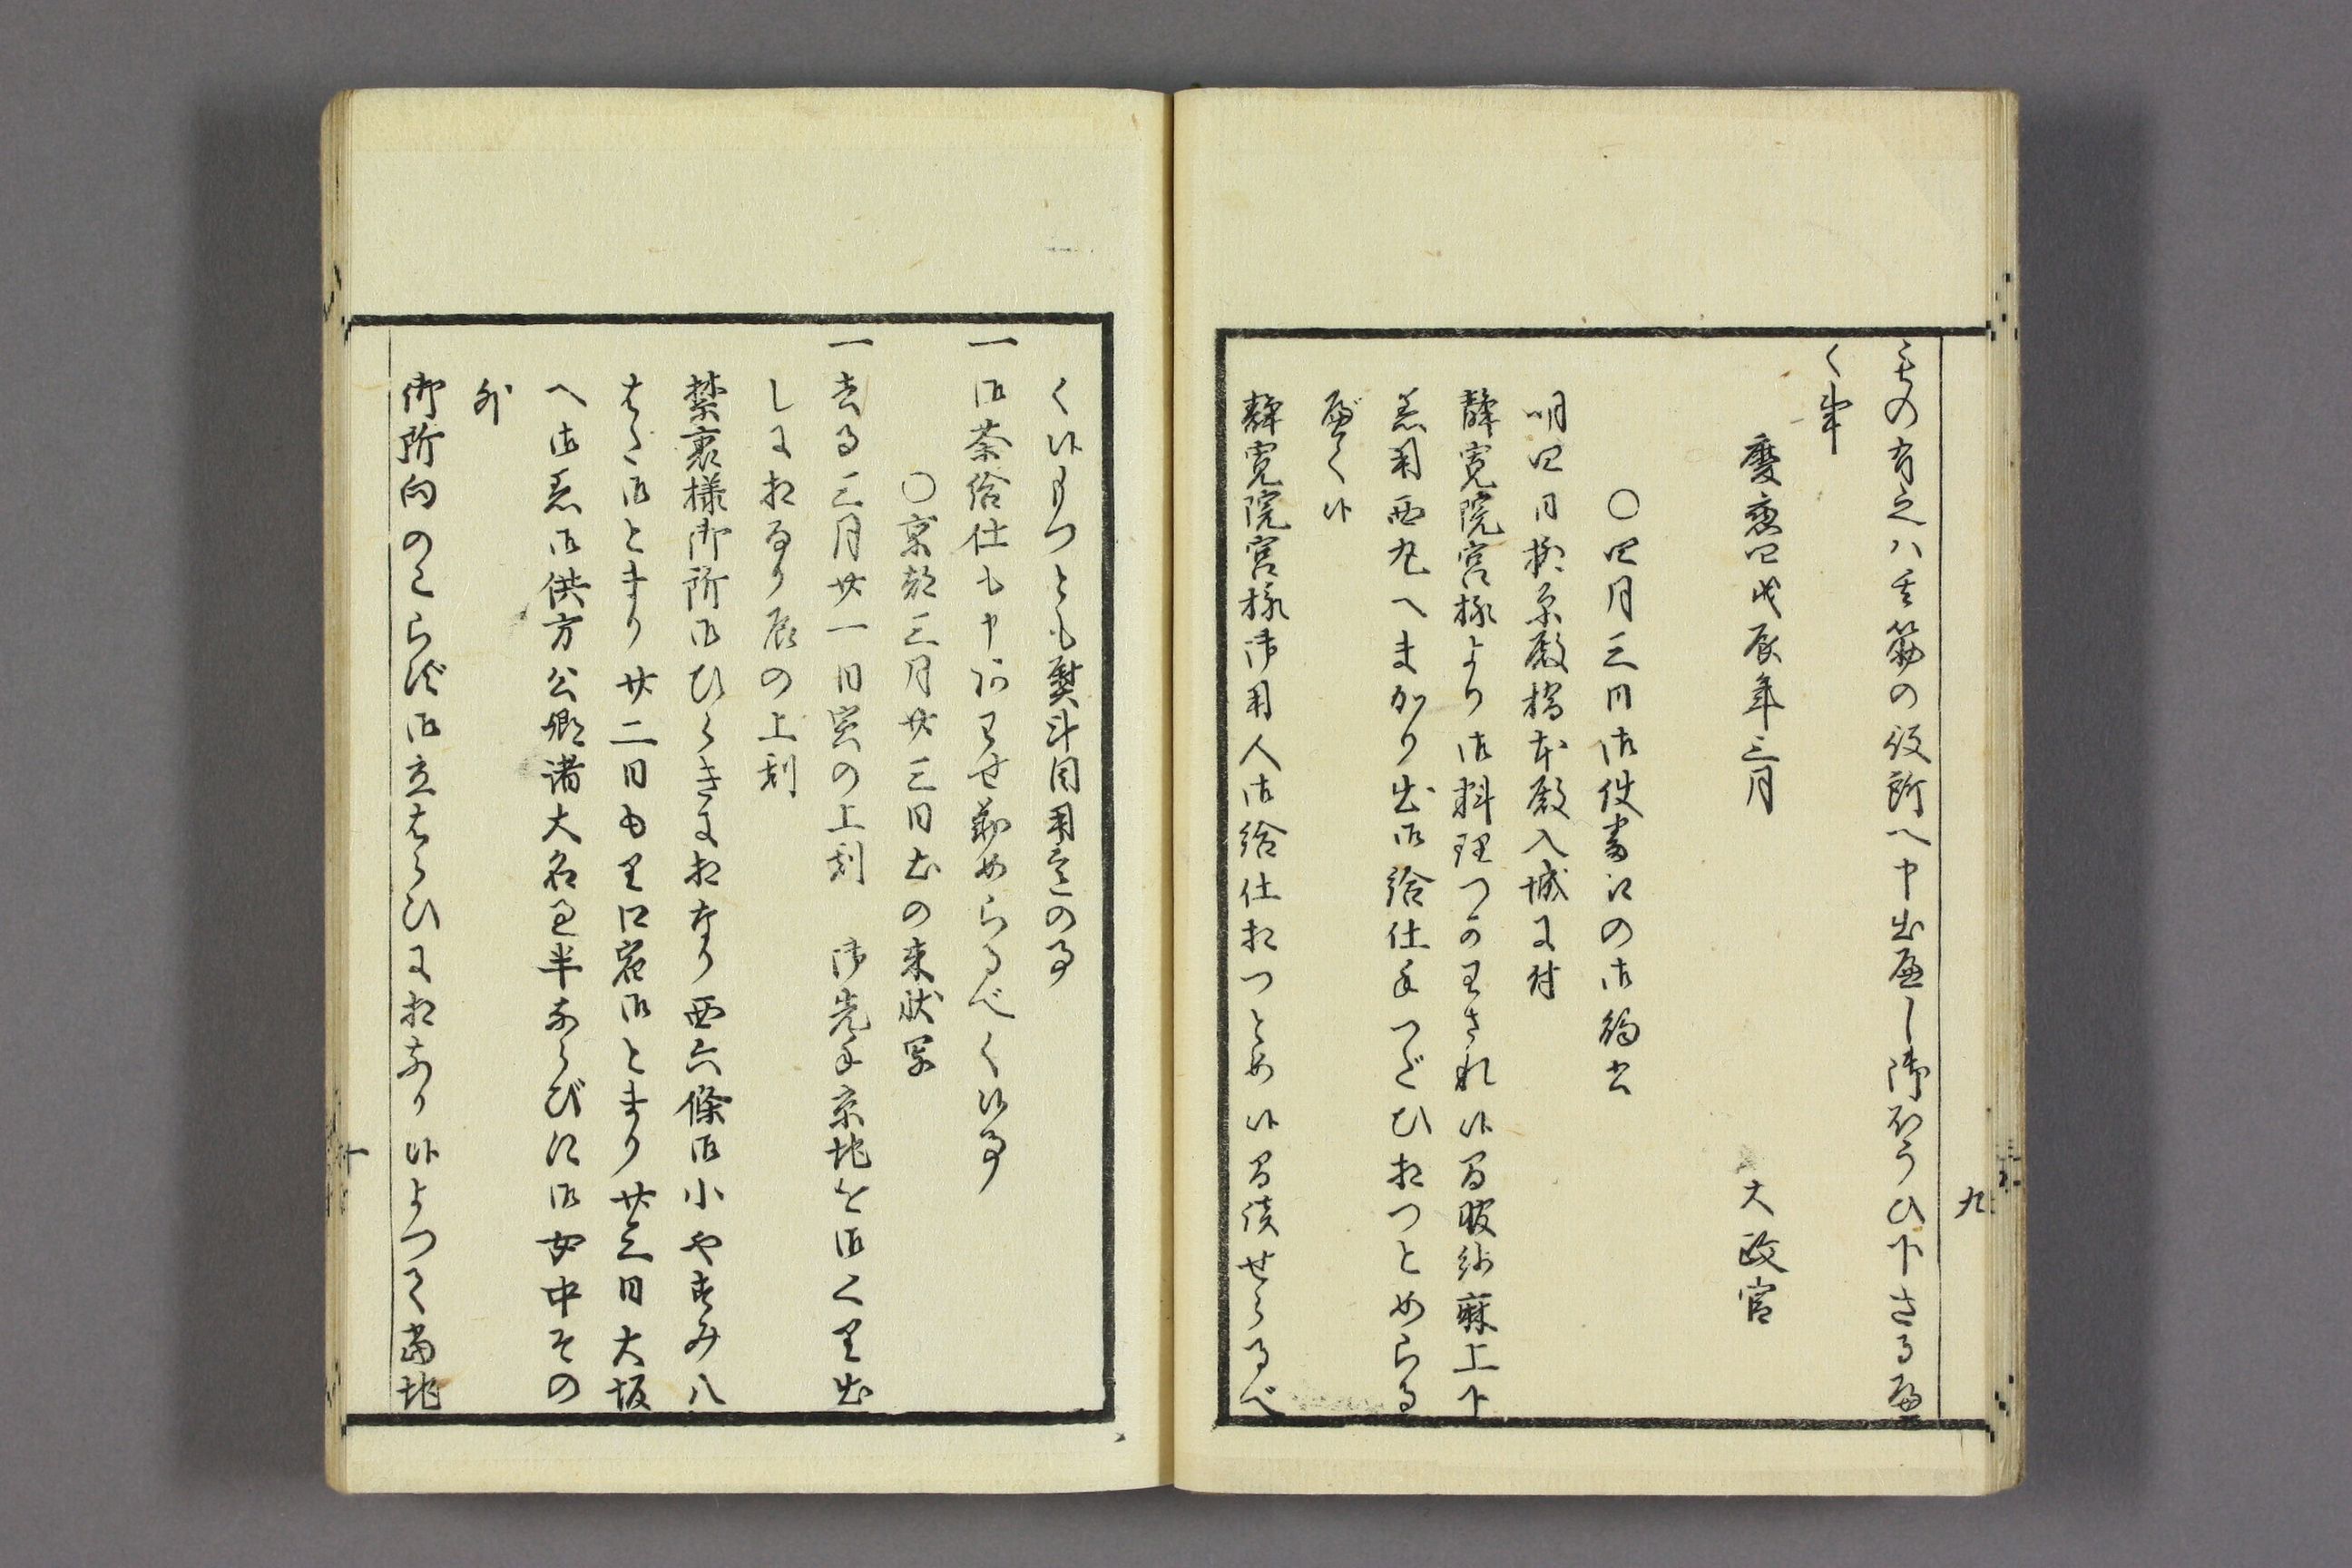 もの有之ハ其筋の役所へ申出べし御取つひ下さるべ
く事
慶應四戊辰年三月
大政官
〇四月三日御使番江の御觸書
明四日柳原殿橋本殿入城に付
静寛院宮様より御料理つかわされ候間服紗麻上下
着用西丸へまかり出御給仕手つだひ相つとめらる
べく候
静寛院宮様御用人御給仕相つとめ候間談せらるべ
く候もつとも熨斗目用意の事
一御茶給仕も申合せ勤めらるべく候事
〇京都三月廿三日出の来状写
一去る三月廿一日寅の上刻 御先手京地を御くり出
しに相なり辰の上刻
禁裏様御所御ひらきに相なり西六條御小やすみ八
はた御とまり廿二日もり口宿御とまり廿三日大坂
へ御着御供方公卿諸大名過半ならびに御女中その
外
御所向のこらず御立はらひに相なり候よつて當地
九
十